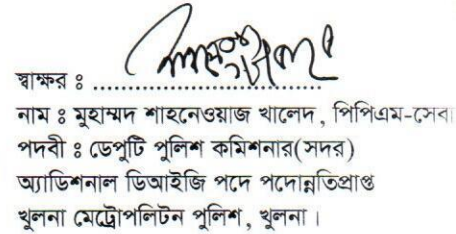 স্বাক্ষর ঃ ..........................................
নাম ঃ মুহাম্মদ শাহনেওয়াজ খালেদ, পিপিএম-সেবা
পদবী ঃ ডেপুটি পুলিশ কমিশনার(সদর)
অ্যাডিশনাল ডিআইজি পদে পদোন্নতিপ্রাপ্ত
খুলনা মেট্রোপলিটন পুলিশ, খুলনা।